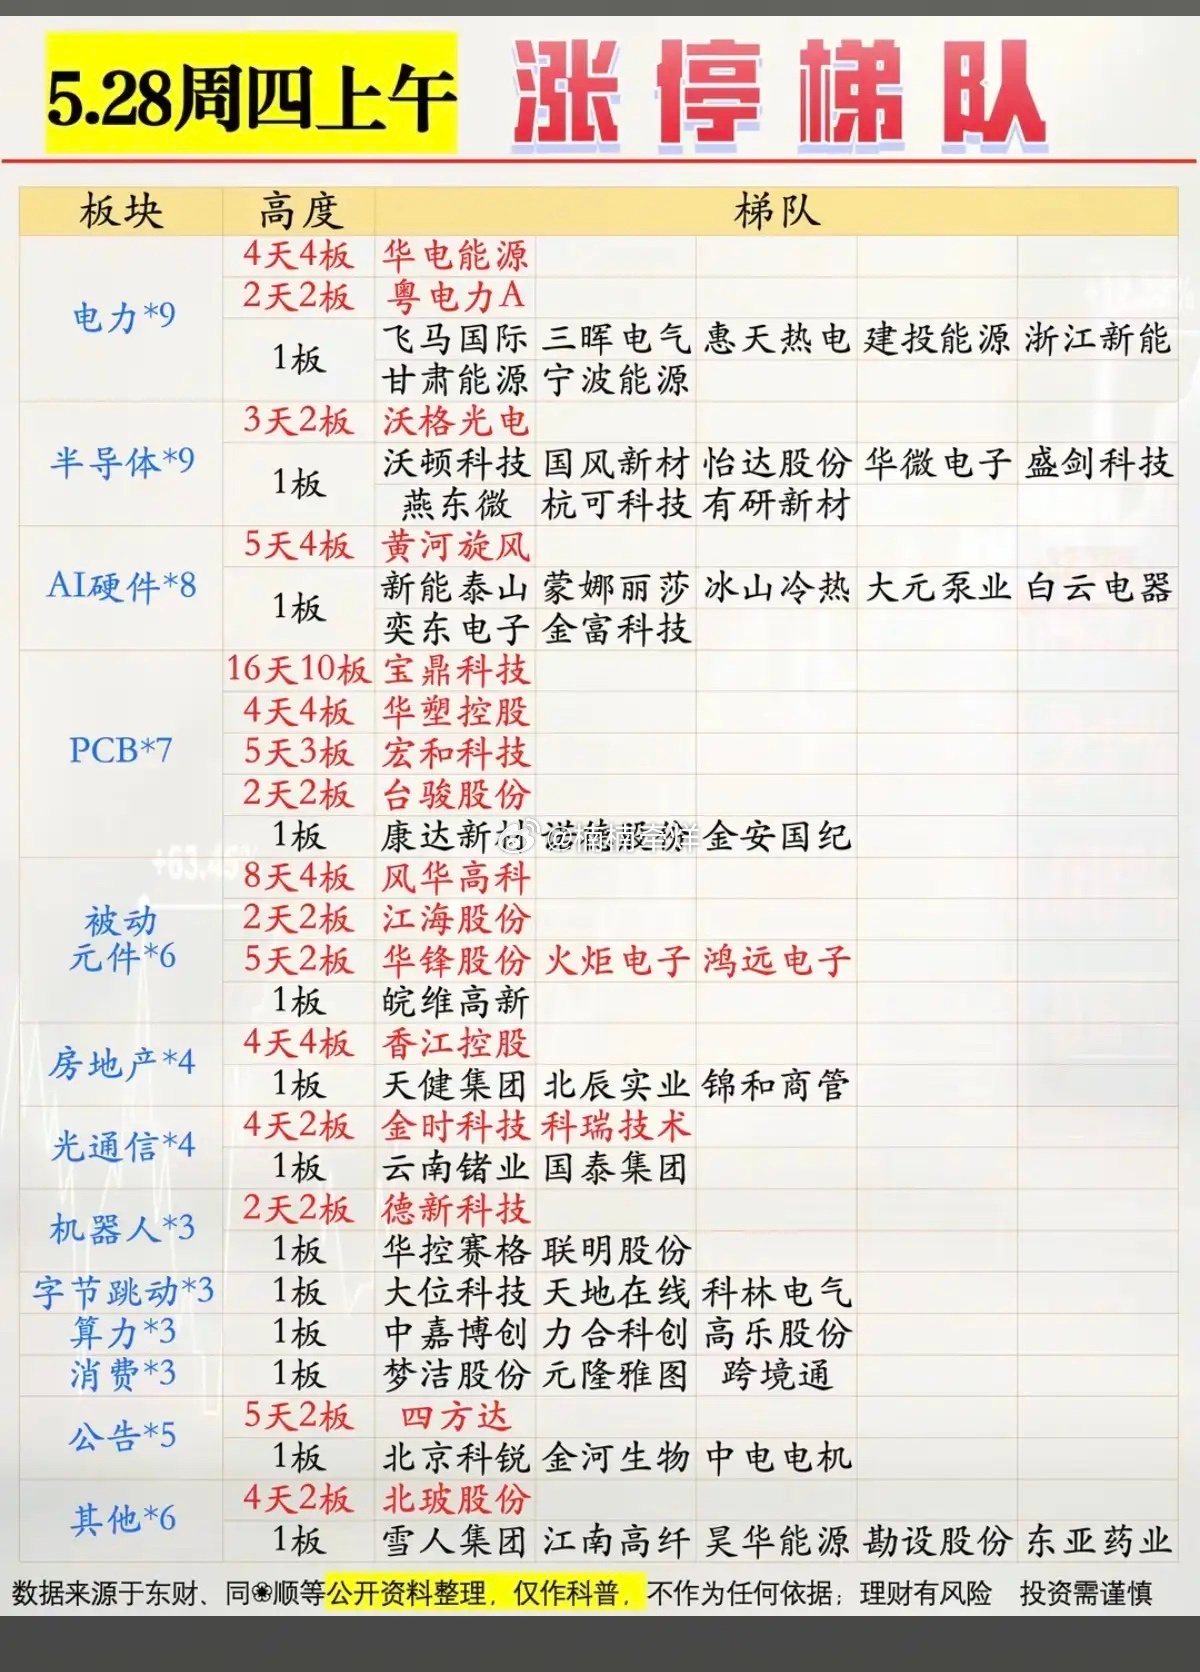 5.28周四上午 涨停梯队
板块 高度 梯队
电力*9
4天4板 华电能源
2天2板 粤电力A
1板 飞马国际 三晖电气 惠天热电 建投能源 浙江新能
甘肃能源 宁波能源
半导体*9
3天2板 沃格光电
1板 沃顿科技 国风新材 怡达股份 华微电子 盛剑科技
燕东微 杭可科技 有研新材
AI硬件*8
5天4板 黄河旋风
1板 新能泰山 蒙娜丽莎 冰山冷热 大元泵业 白云电器
奕东电子 金富科技
PCB*7
16天10板 宝鼎科技
4天4板 华塑控股
5天3板 宏和科技
2天2板 台骏股份
1板 康达新材 金安国纪
@楠楠牵祥
被动
元件*6
8天4板 风华高科
2天2板 江海股份
5天2板 华锋股份 火炬电子 鸿远电子
1板 皖维高新
房地产*4
4天4板 香江控股
1板 天健集团 北辰实业 锦和商管
光通信*4
4天2板 金时科技 科瑞技术
1板 云南锗业 国泰集团
机器人*3
2天2板 德新科技
1板 华控赛格 联明股份
字节跳动*3 1板 大位科技 天地在线 科林电气
算力*3 1板 中嘉博创 力合科创 高乐股份
消费*3 1板 梦洁股份 元隆雅图 跨境通
公告*5
5天2板 四方达
1板 北京科锐 金河生物 中电电机
其他*6
4天2板 北玻股份
1板 雪人集团 江南高纤 昊华能源 勘设股份 东亚药业
数据来源于东财、同❀顺等公开资料整理，仅作科普，不作为任何依据；理财有风险 投资需谨慎